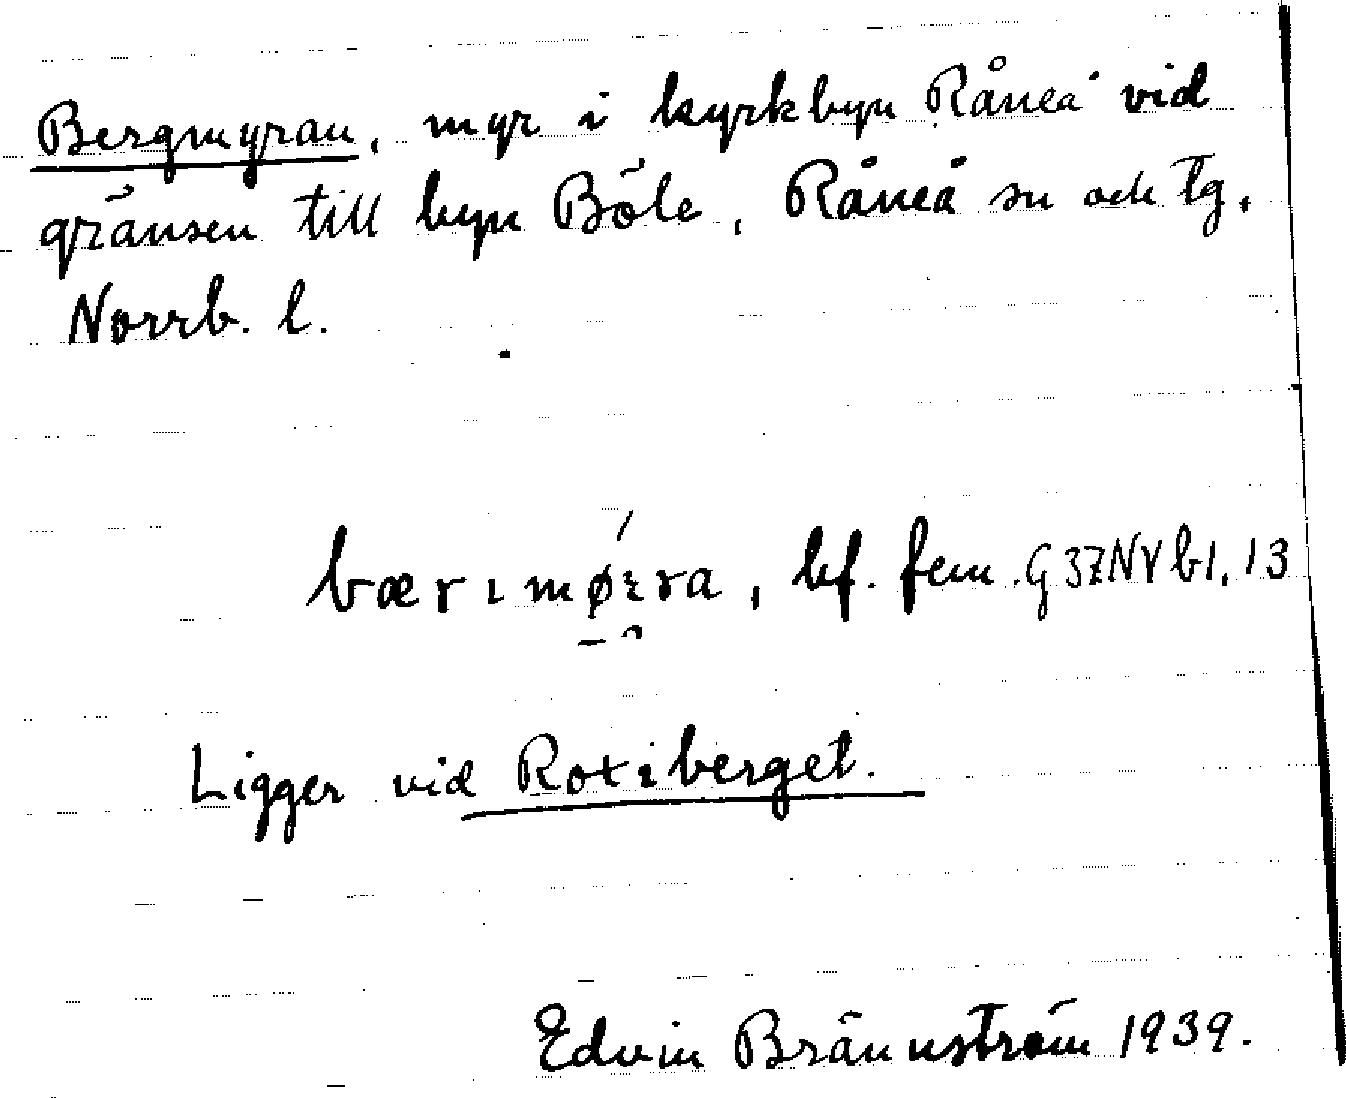 Bergmyran, myr i kyrkbyn Råneå vid
gränsen till byn Böle, Råneå sn och tg,
Norrb. l.
bf. fem. G3ZNVb1,13
Ligger vid Rotiberget.
Edvin Brännström 1939.